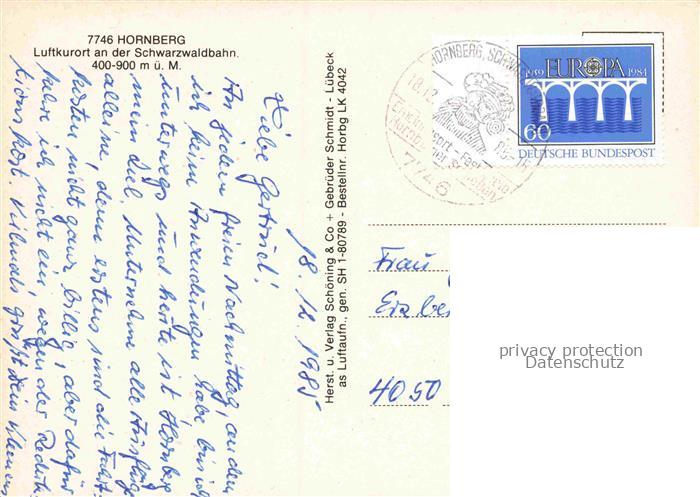 7746 HORNBERG
Luftkurort an der Schwarzwaldbahn.
400-900 m ü. M.
18.12.1985
Liebe Gertrud!
An jedem freien Nachmittag, an dem
ich keine Anwendungen habe bin ich
unterwegs und heute ist Hornberg
mein Ziel. Unternehme alle Ausflüge
alleine, denn erstens sind die Fahrt-
kosten nicht ganz billig, aber dafür
kehre ich nicht ein, wegen der Reduk-
tionskost. Vielmals grüßt Dein Klemens
Herst. u. Verlag Schöning & Co + Gebrüder Schmidt - Lübeck
as Luftaufn., gen. SH 1-80789 - Bestellnr. Horbg LK 4042
HORNBERG, SCHWARZWALDBAHN
18.12.
7746
1959 EUROPA 1984
60
DEUTSCHE BUNDESPOST
Frau
4050
privacy protection
Datenschutz